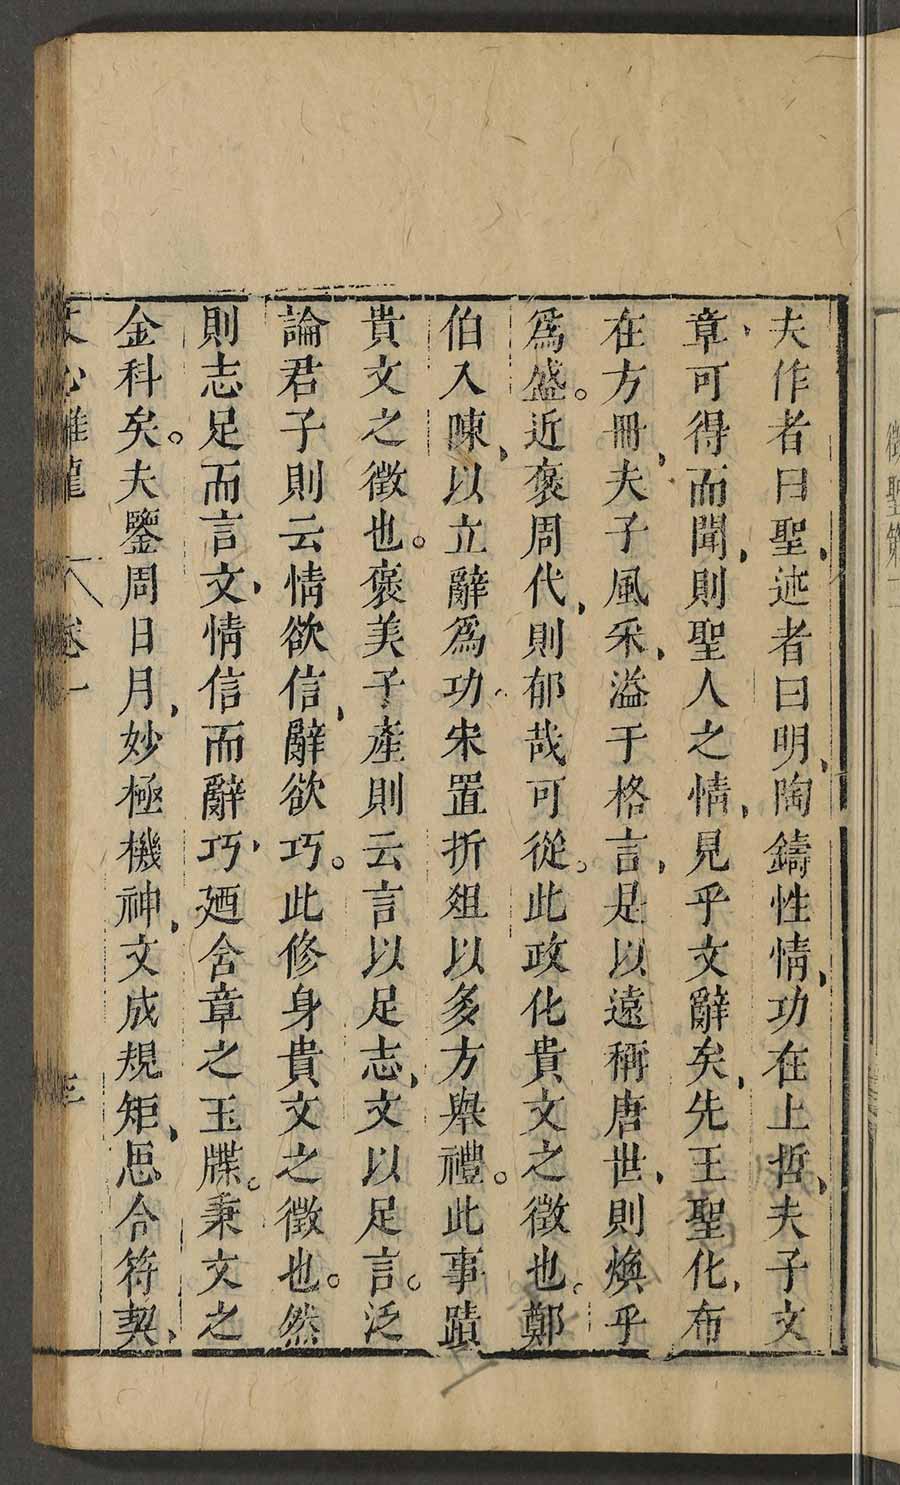 夫作者曰聖、述者曰明、陶鑄性情、功在上哲、夫子文
章、可得而聞、則聖人之情、見乎文辭矣、先王聖化、布
在方冊、夫子風采、溢于格言、是以遠稱唐世、則煥乎
爲盛。近褒周代、則郁哉可從。此政化貴文之徵也。鄭
伯入陳、以立辭爲功、宋置折俎以多方舉禮。此事蹟
貴文之徵也。褒美子產則云言以足志、文以足言。泛
論君子則云情欲信、辭欲巧。此修身貴文之徵也。然
則志足而言文、情信而辭巧、廼含章之玉牒。秉文之
金科矣。夫鑒周日月、妙極機神、文成規矩、思合符契、
文心雕龍 卷一 三
徵聖第二